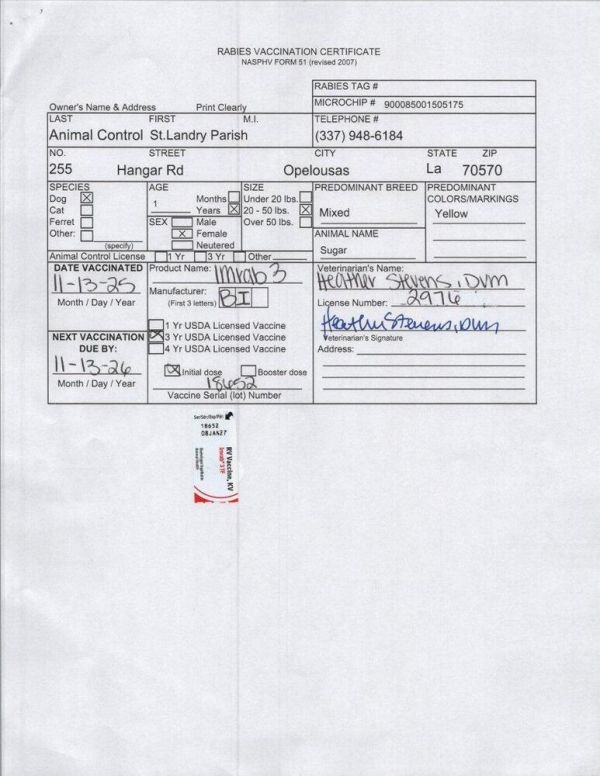 RABIES VACCINATION CERTIFICATE
NASPHV FORM 51 (revised 2007)
RABIES TAG #
Owner's Name & Address Print Clearly MICROCHIP # 900085001505175
LAST FIRST M.I. TELEPHONE #
Animal Control St.Landry Parish (337) 948-6184
NO. STREET CITY STATE ZIP
255 Hangar Rd Opelousas La 70570
SPECIES AGE SIZE PREDOMINANT BREED PREDOMINANT COLORS/MARKINGS
Dog X Months Under 20 lbs.
Cat 1 Years X 20 - 50 lbs. X Mixed Yellow
Ferret SEX Male Over 50 lbs.
Other: X Female ANIMAL NAME
(specify) Neutered Sugar
Animal Control License 1 Yr 3 Yr Other
DATE VACCINATED Product Name: Imrab 3 Veterinarian's Name:
11-13-25 Heather Stevens, DVM
Month / Day / Year Manufacturer: BI License Number: 2976
(First 3 letters)
1 Yr USDA Licensed Vaccine Heather Stevens, DVM
NEXT VACCINATION X 3 Yr USDA Licensed Vaccine Veterinarian's Signature
DUE BY: 4 Yr USDA Licensed Vaccine Address:
11-13-26 X Initial dose Booster dose
Month / Day / Year 18652
Vaccine Serial (lot) Number
Ser/Sér/Exp/Pér:
18652
08JAN27
RV Vaccine, KV
Imrab® 3 TF